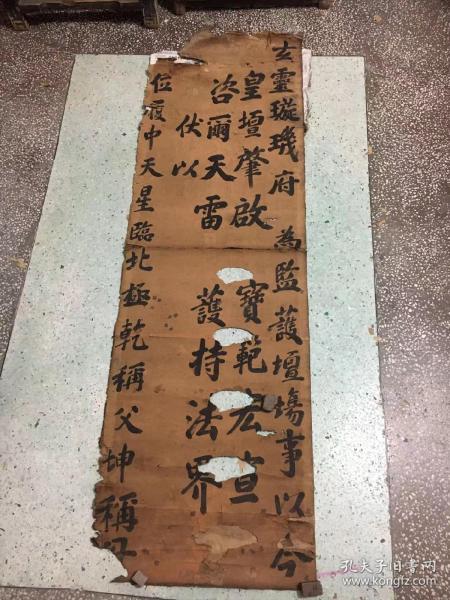 玄靈璇璣府 為監護壇塲事以今
皇壇肇啟 寶範宏宣
咨爾天雷 護持法界
伏以
位履中天星臨北極乾稱父坤稱
孔夫子旧书网
www.kongfz.com